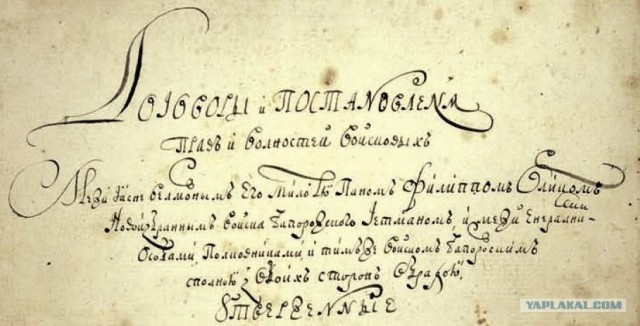 Договоры и постановлениѧ
Правъ и волностей войсковыхъ
Межи Ясне велможнымъ Его млстю Паномъ Филиппомъ Орликомъ
Новоизбраннымъ войска Запорожского Гетманомъ, и межи Енералними
Особами Полковниками, и тимъ же войскомъ Запорожскимъ
сполною з обоихъ сторонъ обрадою
Утверженные
YAPLAKAL.COM